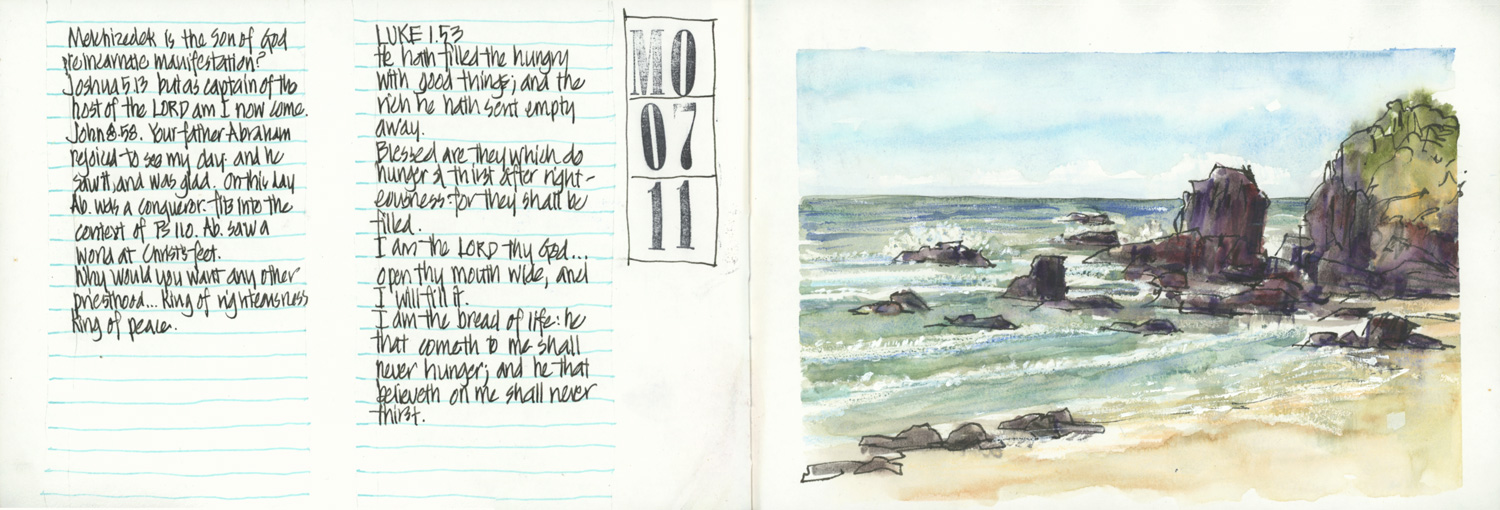 Melchizedek is the Son of God
preincarnate manifestation?
Joshua 5.13 but as captain of the
host of the LORD am I now come.
John 8.58. Your father Abraham
rejoiced to see my day and he
saw it, and was glad. On this day
Ab. was a conqueror. fits into the
context of Ps 110. Ab. saw a
world at Christ's feet.
Why would you want any other
priesthood... King of righteousness
King of peace.
LUKE 1.53
He hath filled the hungry
with good things; and the
rich he hath sent empty
away.
Blessed are they which do
hunger & thirst after right-
eousness: for they shall be
filled.
I am the LORD thy God...
open thy mouth wide, and
I will fill it.
I am the bread of life: he
that cometh to me shall
never hunger; and he that
believeth on me shall never
thirst.
MO
07
11